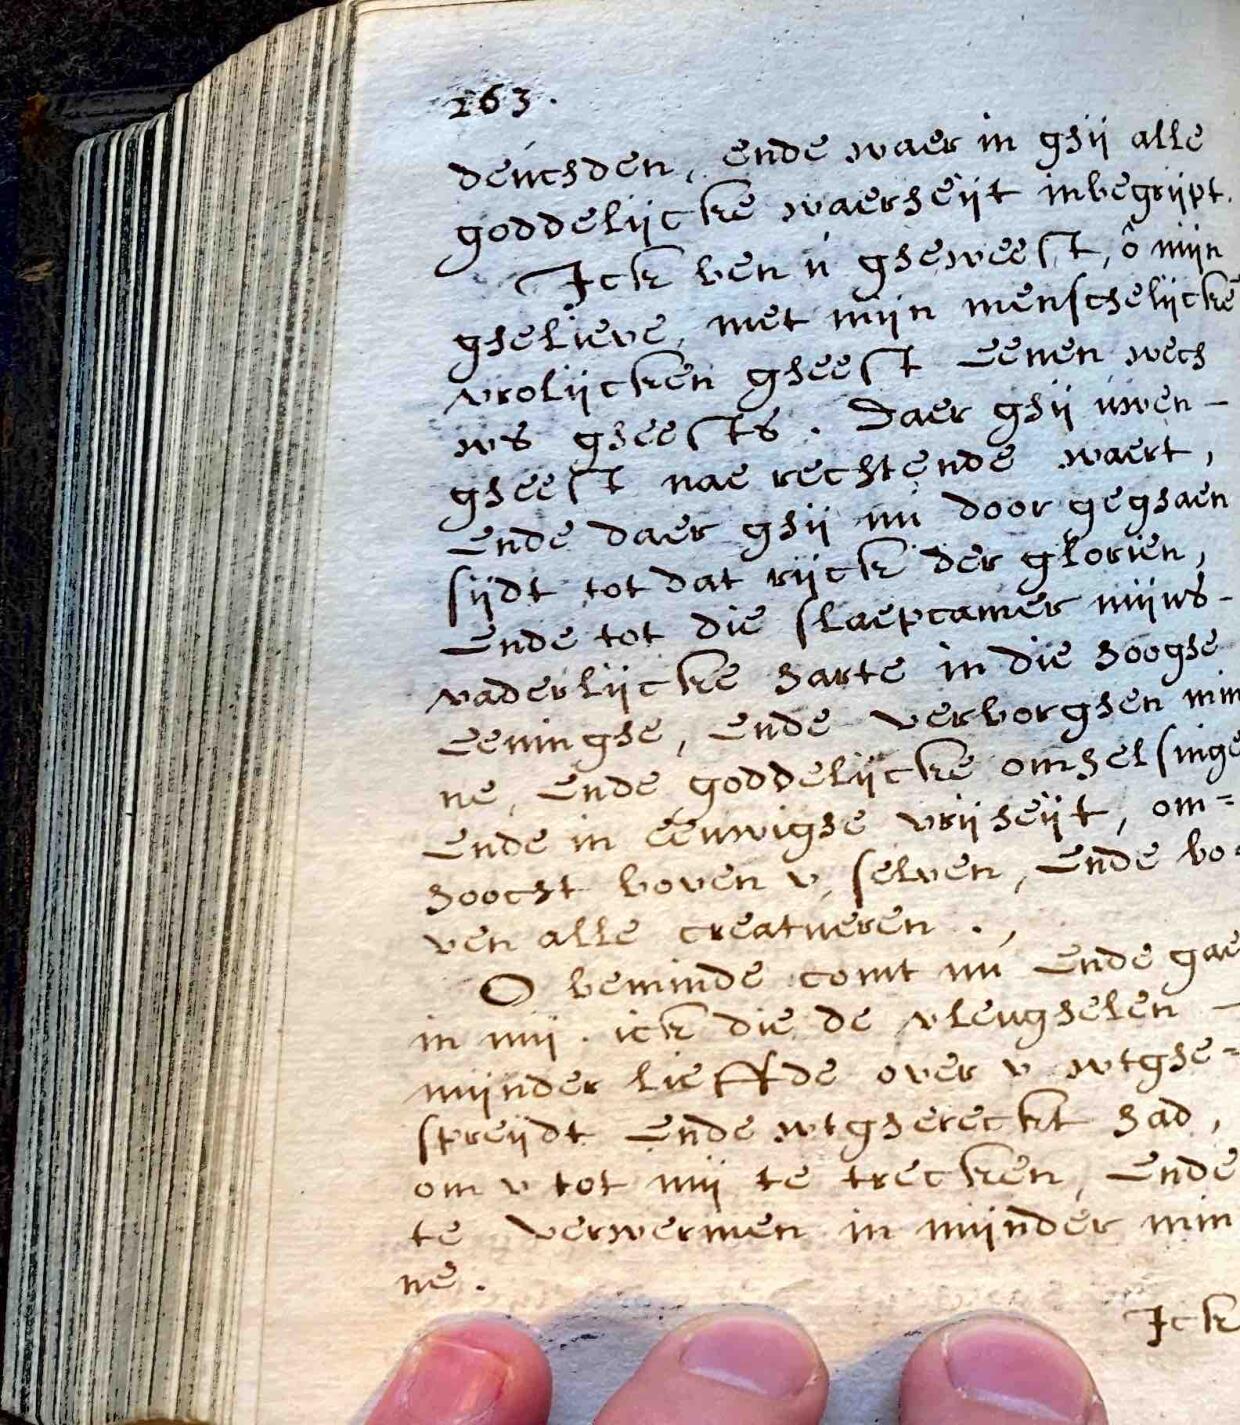 263.
deúchden, ende waer in ghij alle
goddelijcke waerheijt inbegrijpt.
Ick ben ú gheweest, ô mijn
ghelieve, met mijn menschelijcke
vrolijcken gheest eenen wech
ws gheests. Daer ghij uwen -
gheest nae rechtende waert,
Ende daer ghij nú door geghaen
sijdt tot dat rijck der glorien,
Ende tot die slaepcamer mijws -
vaderlijcke harte in die hooghe
Eeninghe, Ende verborghen min
ne, Ende goddelijcke omhelsinge
Ende in eeuwighe vrijheijt, om=
hoocht boven v, selven, Ende bo=
ven alle creatueren.,
O beminde comt nú Ende gae
in mij. ick die de vleughelen -
mijnder lieffde over v wtghe=
spreijdt Ende wtghereckt had,
om v tot mij te trecken, Ende
te verwermen in mijnder min
ne.
Ick